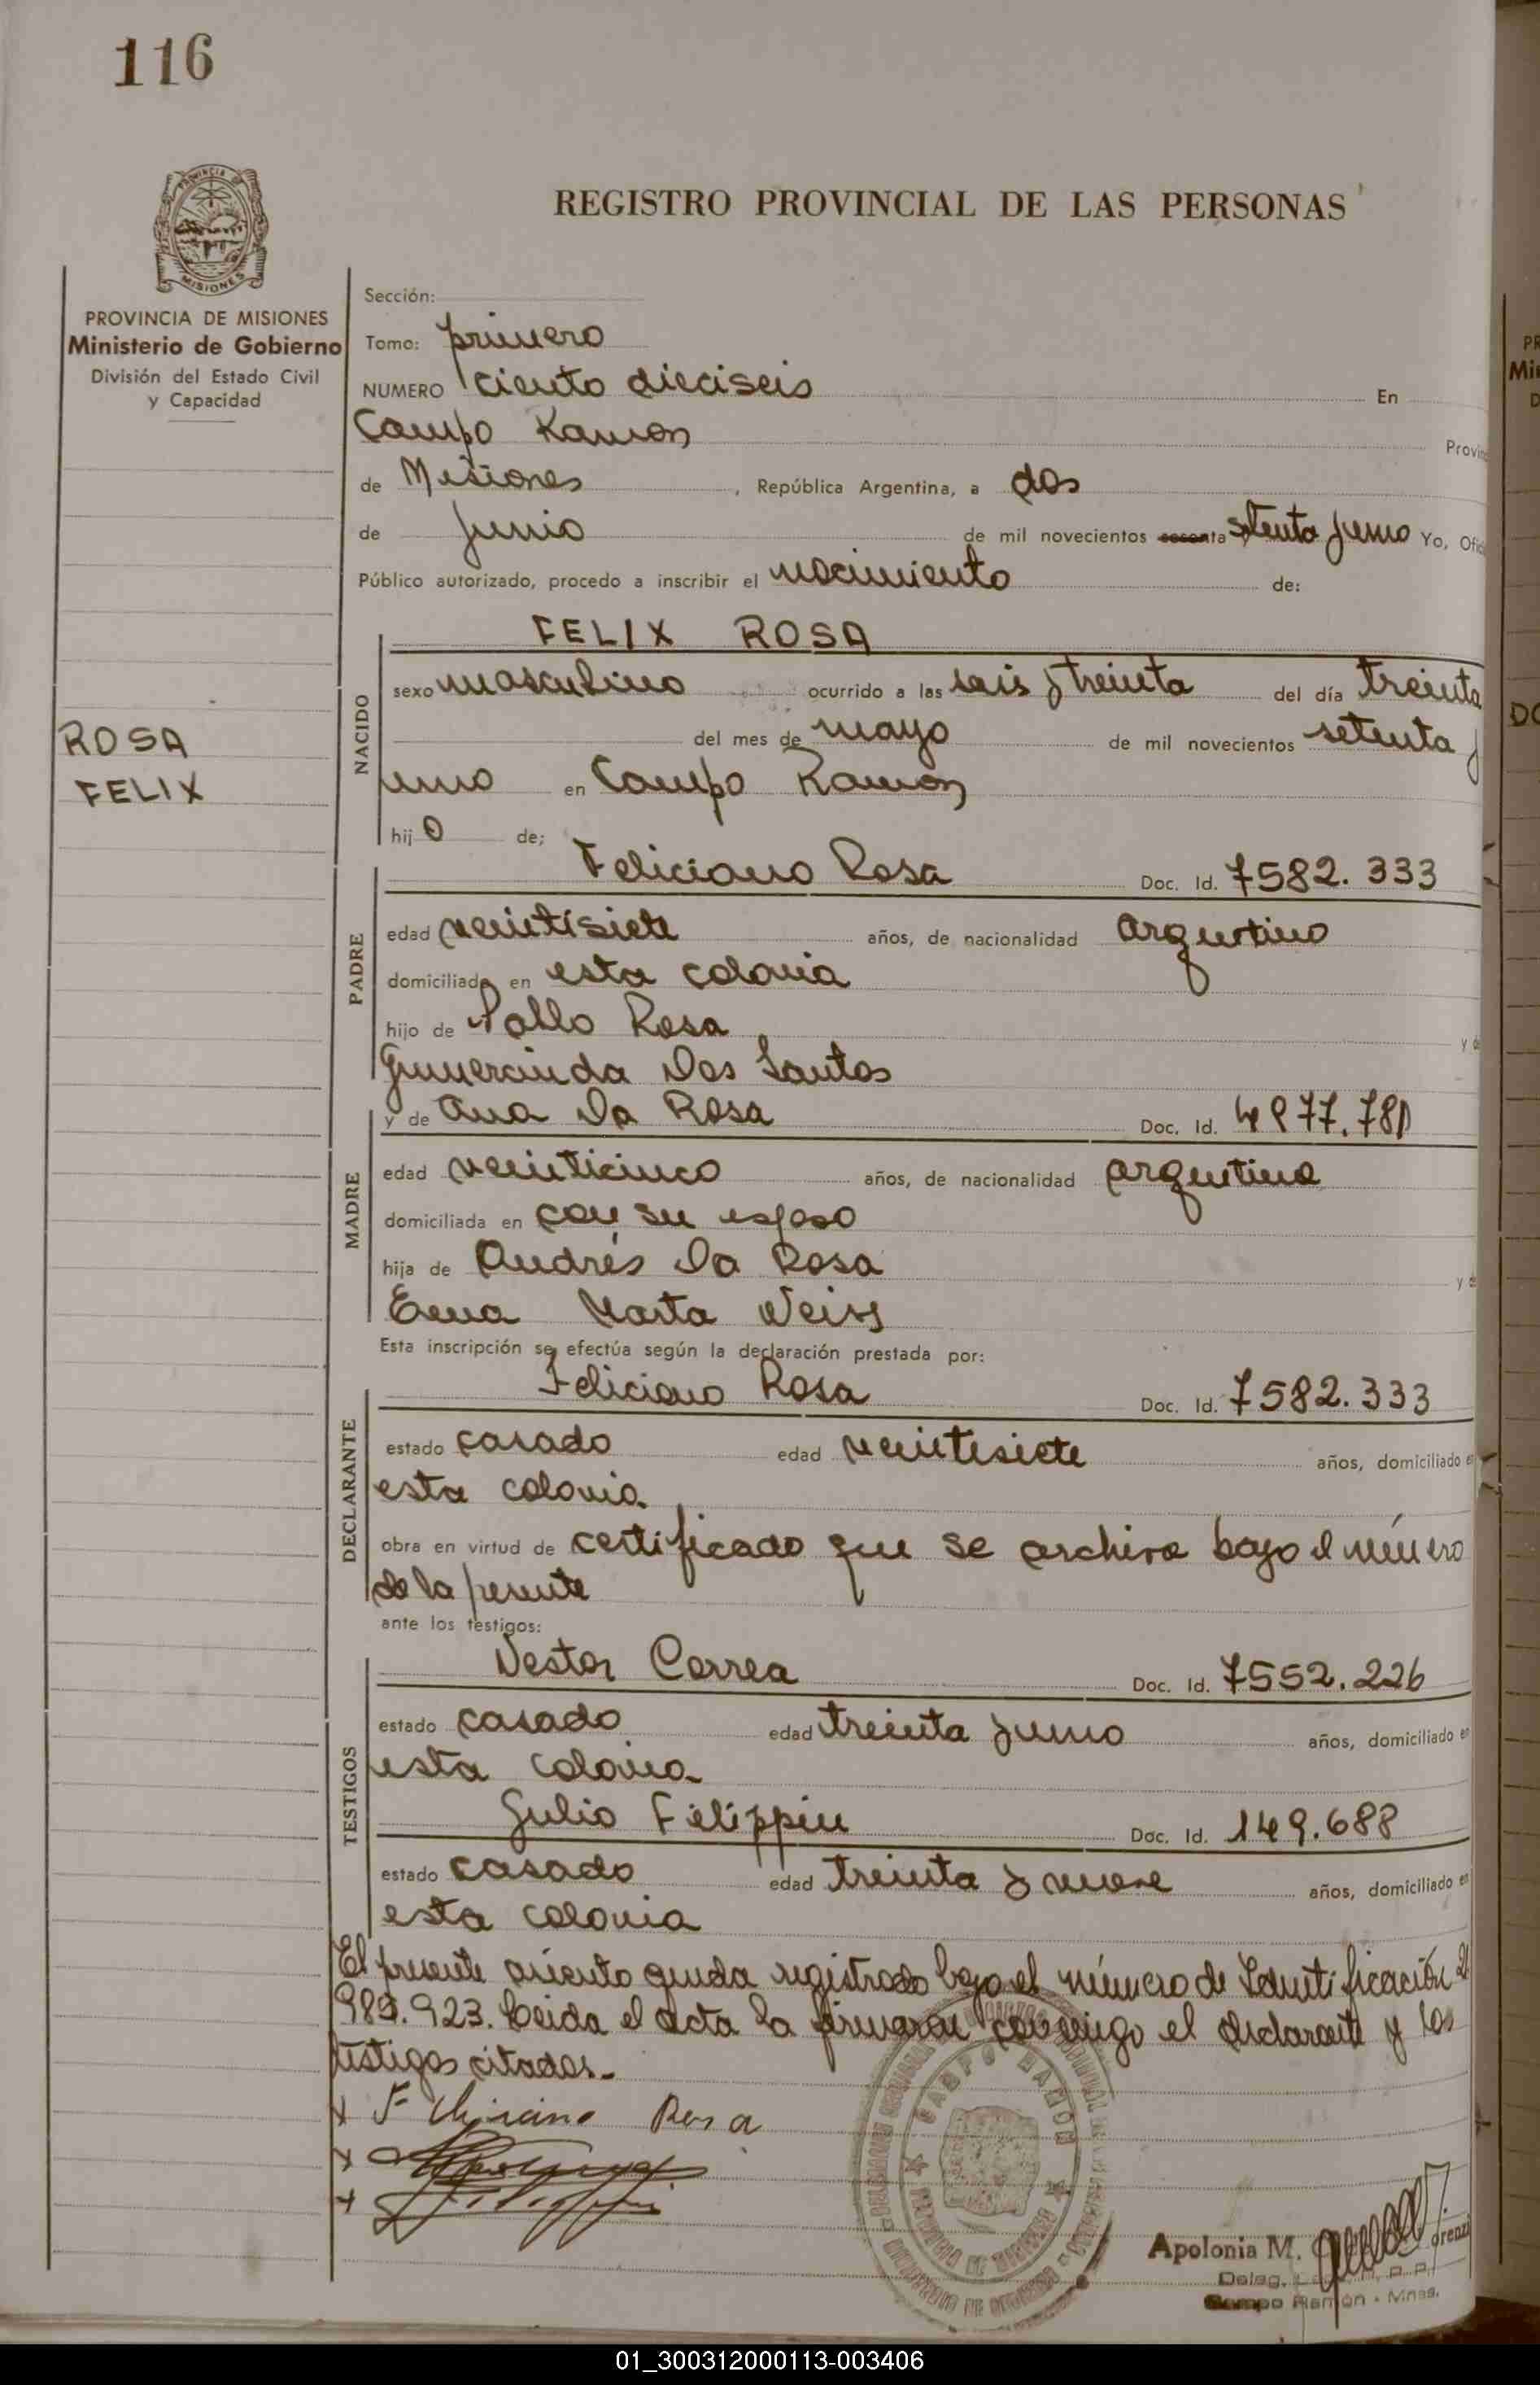 116
PROVINCIA DE
MISIONES
REGISTRO PROVINCIAL DE LAS PERSONAS
PROVINCIA DE MISIONES
Ministerio de Gobierno
División del Estado Civil
y Capacidad
ROSA
FELIX
Sección:
Tomo: primero
NUMERO ciento dieciseis En
Campo Ramon Provin
de Misiones, República Argentina, a dos
de Junio de mil novecientos setenta y uno Yo, Ofic
Público autorizado, procedo a inscribir el nacimiento de:
FELIX ROSA
NACIDO
sexo masculino ocurrido a las seis y treinta del día treinta
del mes de mayo de mil novecientos setenta y
uno en Campo Ramon
hijo de;
Feliciano Rosa Doc. Id. 7582.333
PADRE
edad veintisiete años, de nacionalidad argentino
domiciliado en esta colonia
hijo de Pablo Rosa y de
Gumercinda Dos Santos
y de Ana Da Rosa Doc. Id.
MADRE
edad veinticinco años, de nacionalidad argentina
domiciliada en con su esposo
hija de Andrés Da Rosa y de
Ema Marta Weiss
Esta inscripción se efectúa según la declaración prestada por:
Feliciano Rosa Doc. Id. 7582.333
DECLARANTE
estado casado edad veintisiete años, domiciliado en
esta colonia
obra en virtud de certificado que se archiva bajo el número
de la presente
ante los testigos:
Nestor Correa Doc. Id. 7552.226
TESTIGOS
estado casado edad treinta y uno años, domiciliado en
esta colonia
Julio Filippin Doc. Id. 149.688
estado casado edad treinta y nueve años, domiciliado en
esta colonia
El presente asiento queda registrado bajo el número de Identificación 21
989.923. Leida el acta la firmaron conmigo el declarante y los
testigos citados.-
x Feliciano Rosa
x
x
CAMPO RAMON
Apolonia M.
Deleg.
Campo Ramón - Mnes.
01_300312000113-003406